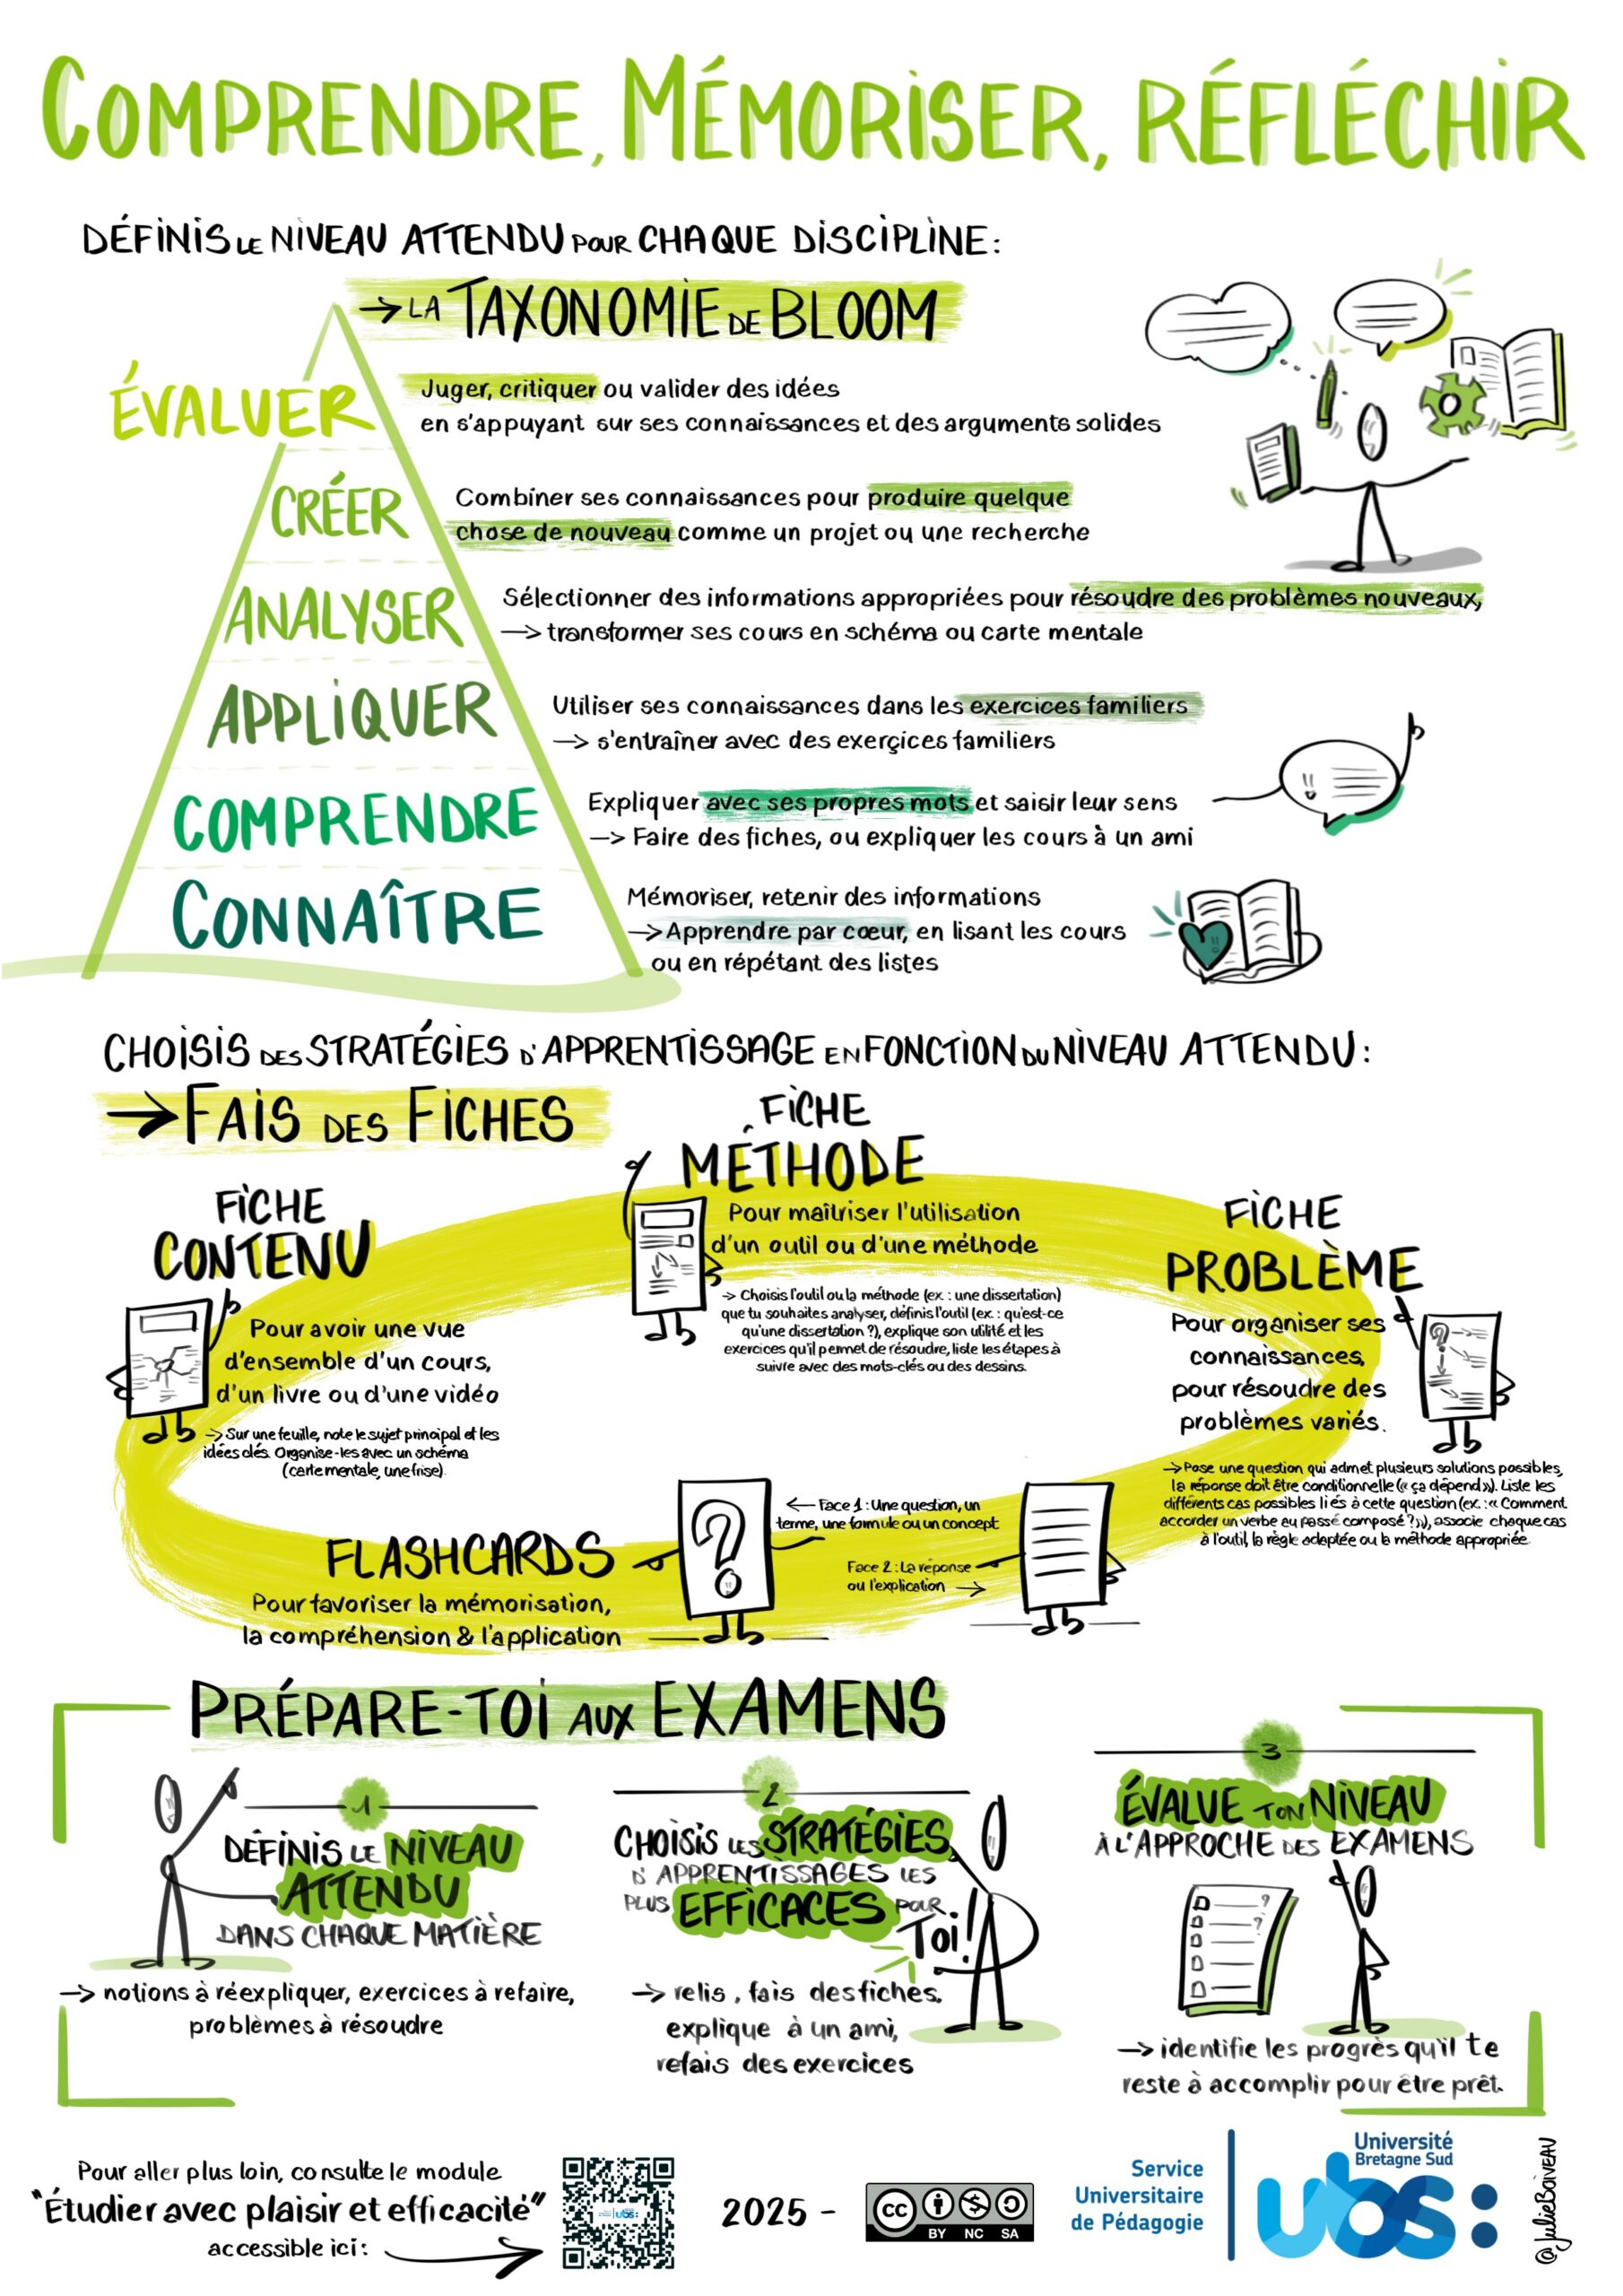 COMPRENDRE, MÉMORISER, RÉFLÉCHIR
DÉFINIS LE NIVEAU ATTENDU POUR CHAQUE DISCIPLINE :
→ LA TAXONOMIE DE BLOOM
ÉVALUER
Juger, critiquer ou valider des idées
en s'appuyant sur ses connaissances et des arguments solides
CRÉER
Combiner ses connaissances pour produire quelque
chose de nouveau comme un projet ou une recherche
ANALYSER
Sélectionner des informations appropriées pour résoudre des problèmes nouveaux,
→ transformer ses cours en schéma ou carte mentale
APPLIQUER
Utiliser ses connaissances dans les exercices familiers
→ s'entraîner avec des exerçices familiers
COMPRENDRE
Expliquer avec ses propres mots et saisir leur sens
→ Faire des fiches, ou expliquer les cours à un ami
CONNAÎTRE
Mémoriser, retenir des informations
→ Apprendre par cœur, en lisant les cours
ou en répétant des listes
CHOISIS DES STRATÉGIES D'APPRENTISSAGE EN FONCTION DU NIVEAU ATTENDU :
→ FAIS DES FICHES
FICHE
CONTENU
Pour avoir une vue
d'ensemble d'un cours,
d'un livre ou d'une vidéo
→ Sur une feuille, note le sujet principal et les
idées clés. Organise-les avec un schéma
(carte mentale, une frise).
FICHE
MÉTHODE
Pour maîtriser l'utilisation
d'un outil ou d'une méthode
→ Choisis l'outil ou la méthode (ex : une dissertation)
que tu souhaites analyser, définis l'outil (ex : qu'est-ce
qu'une dissertation ?), explique son utilité et les
exercices qu'il permet de résoudre, liste les étapes à
suivre avec des mots-clés ou des dessins.
FICHE
PROBLÈME
Pour organiser ses
connaissances,
pour résoudre des
problèmes variés.
→ Pose une question qui admet plusieurs solutions possibles,
la réponse doit être conditionnelle (« ça dépend »). Liste les
différents cas possibles liés à cette question (ex : « Comment
accorder un verbe au passé composé ? »), associe chaque cas
à l'outil, la règle adaptée ou la méthode appropriée.
FLASHCARDS
Pour favoriser la mémorisation,
la compréhension & l'application
?
← Face 1 : Une question, un
terme, une formule ou un concept
Face 2 : La réponse
ou l'explication →
PRÉPARE-TOI AUX EXAMENS
1
DÉFINIS LE NIVEAU
ATTENDU
DANS CHAQUE MATIÈRE
→ notions à réexpliquer, exercices à refaire,
problèmes à résoudre
2
CHOISIS LES STRATÉGIES
D'APPRENTISSAGES LES
PLUS EFFICACES POUR
TOI !
→ relis, fais des fiches,
explique à un ami,
refais des exercices
3
ÉVALUE TON NIVEAU
À L'APPROCHE DES EXAMENS
→ identifie les progrès qu'il te
reste à accomplir pour être prêt.
Pour aller plus loin, consulte le module
"Étudier avec plaisir et efficacité"
accessible ici :
2025 -
cc BY NC SA
Service
Universitaire
de Pédagogie
Université
Bretagne Sud
ubs:
@JulieBoiveau